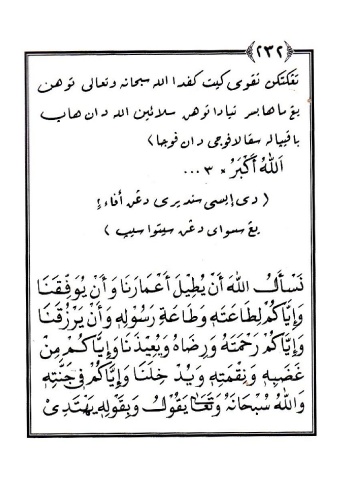 ﴿٢٣٢﴾
تغكتكن تقوى كيت كفدا الله سبحانه وتعالى توهن
يغ مها بسر تيادا توهن سلائين الله دان هاب
باقياله سقالا فوجي دان فوجا)
اَللهُ أَكْبَرُ × ٣ ...
( دي ايسي سنديري دغن
يغ سسواي دغن )
نَسْأَلُ اللهَ أَنْ يُطِيْلَ أَعْمَارَنَا وَأَنْ يُوَفِّقَنَا
وَإِيَّاكُمْ لِطَاعَتِهِ وَطَاعَةِ رَسُوْلِهِ وَأَنْ يَرْزُقَنَا
وَإِيَّاكُمْ رَحْمَتَهُ وَرِضَاهُ وَيُعِيْذَنَا وَإِيَّاكُمْ مِنْ
غَضَبِهِ وَنِقْمَتِهِ وَيُدْخِلَنَا وَإِيَّاكُمْ فِي جَنَّتِهِ
وَاللهُ سُبْحَانَهُ وَتَعَالَى يَقُوْلُ وَبِقَوْلِهِ يَهْتَدِيْ